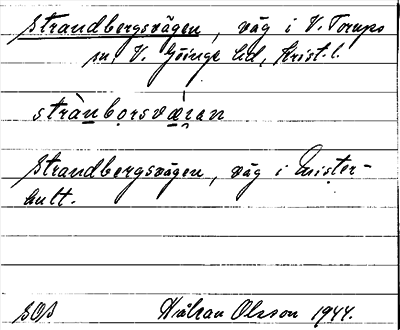 Strandbergsvägen, väg i V. Torups
sn V. Göinge hd, Krist. l.
strànborsvæ̀ı̯an
Strandbergsvägen, väg i Mister-
hult.
SOS Håkan Olsson 1944.